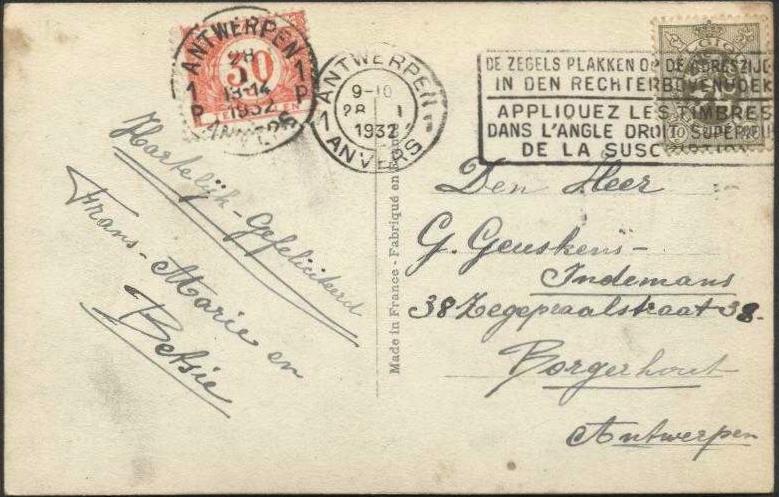 ANTWERPEN
28
I
13-14
1932
1 P
1 P
30
ANTWERPEN
9-10
28 I
1932
1
ANVERS
DE ZEGELS PLAKKEN OP DE ADRESZIJD
IN DEN RECHTERBOVENHOEK
APPLIQUEZ LES TIMBRES
DANS L'ANGLE DROIT SUPERIEU
DE LA SUSCRIPTION
Hartelijk-Gefeliciteerd
Frans-Marie en
Betsie
Made in France - Fabriqué en France
Den Heer
G. Geuskens-
Indemans
38 Zegepraalstraat 38.
Borgerhout
Antwerpen